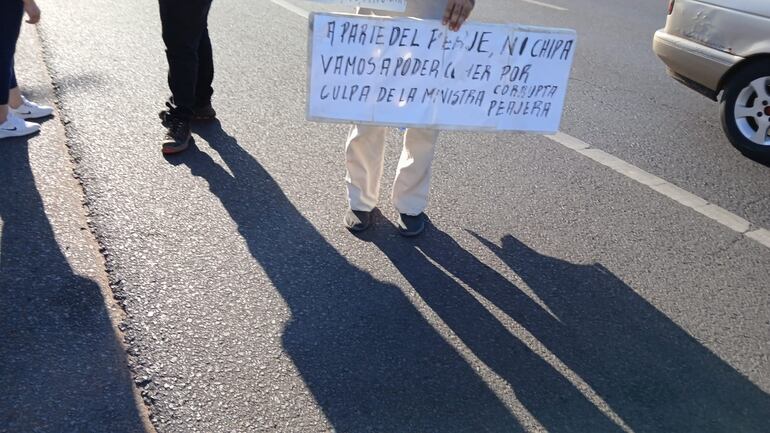 A PARTE DEL PERJE, NI CHIPA
VAMOS A PODER COMER POR
CULPA DE LA MINISTRA CORRUPTA
PEAJERA